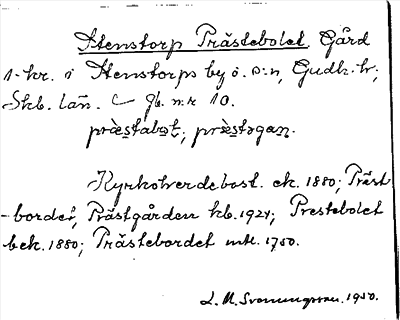 Stenstorp Prästebolet. Gård
1-kr. i Stenstorps by o. s:n, Gudh. hr;
Skb. län. gb. nr 10.
præstabɷt; præstəgan.
Kyrkoherdebost. ek. 1880; Präst-
-bordet, Prästgården kb. 1924; Prestebolet
bek. 1880; Prästebordet mtl. 1750.
L. M. Svenungsson. 1950.